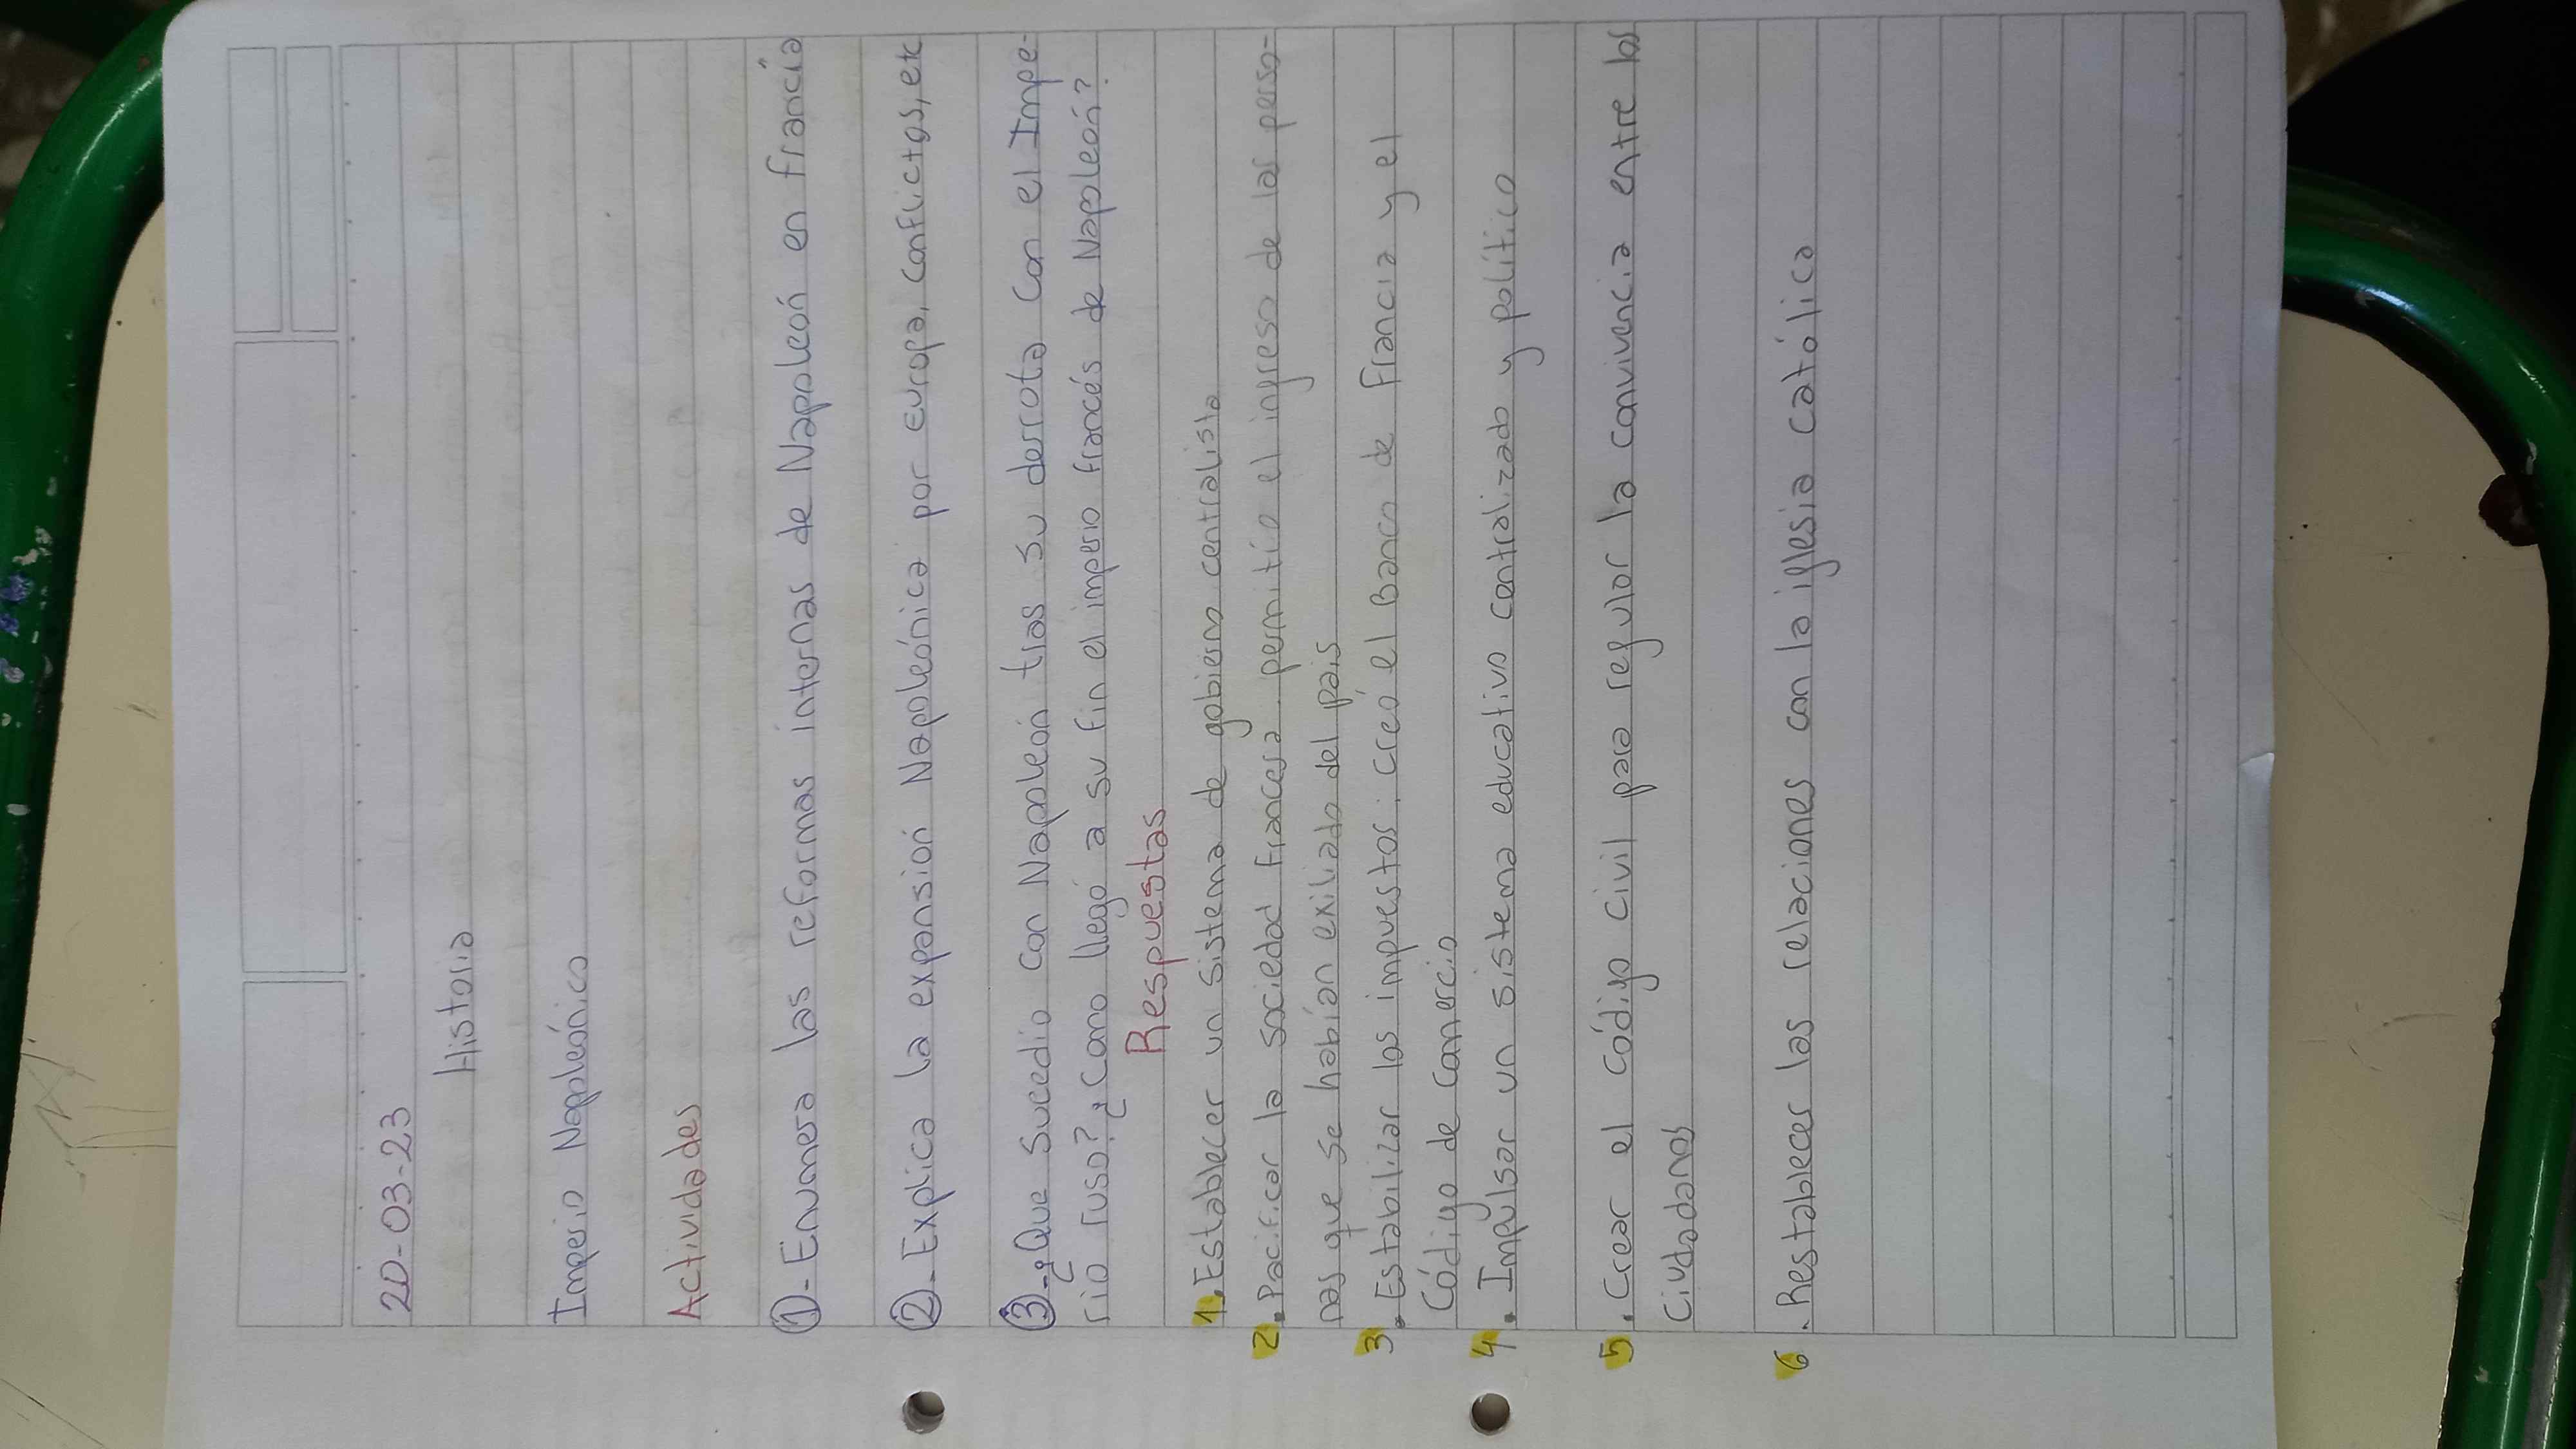 20-03-23
Historia
Imperio Napoleónico
Actividades
①-Enumera las reformas internas de Napoleón en francia
②-Explica la expansión Napoleónica por europa, conflictos, etc
③-¿Que Sucedio con Napoleón tras su derrota con el Impe-
rio ruso? ¿Como llegó a su fin el imperio francés de Napoleón?
Respuestas
1. Establecer un sistema de gobierno centralista
2. Pacificar la sociedad francesa. permitio el ingreso de las perso-
nas que se habían exiliado del pais
3. Estabilizar los impuestos. creó el Banco de francia y el
Código de Comercio
4. Impulsar un sistema educativo centralizado y político
5. Crear el código civil para regular la convivencia entre los
Ciudadanos
6. Restablecer las relaciones con la iglesia católica